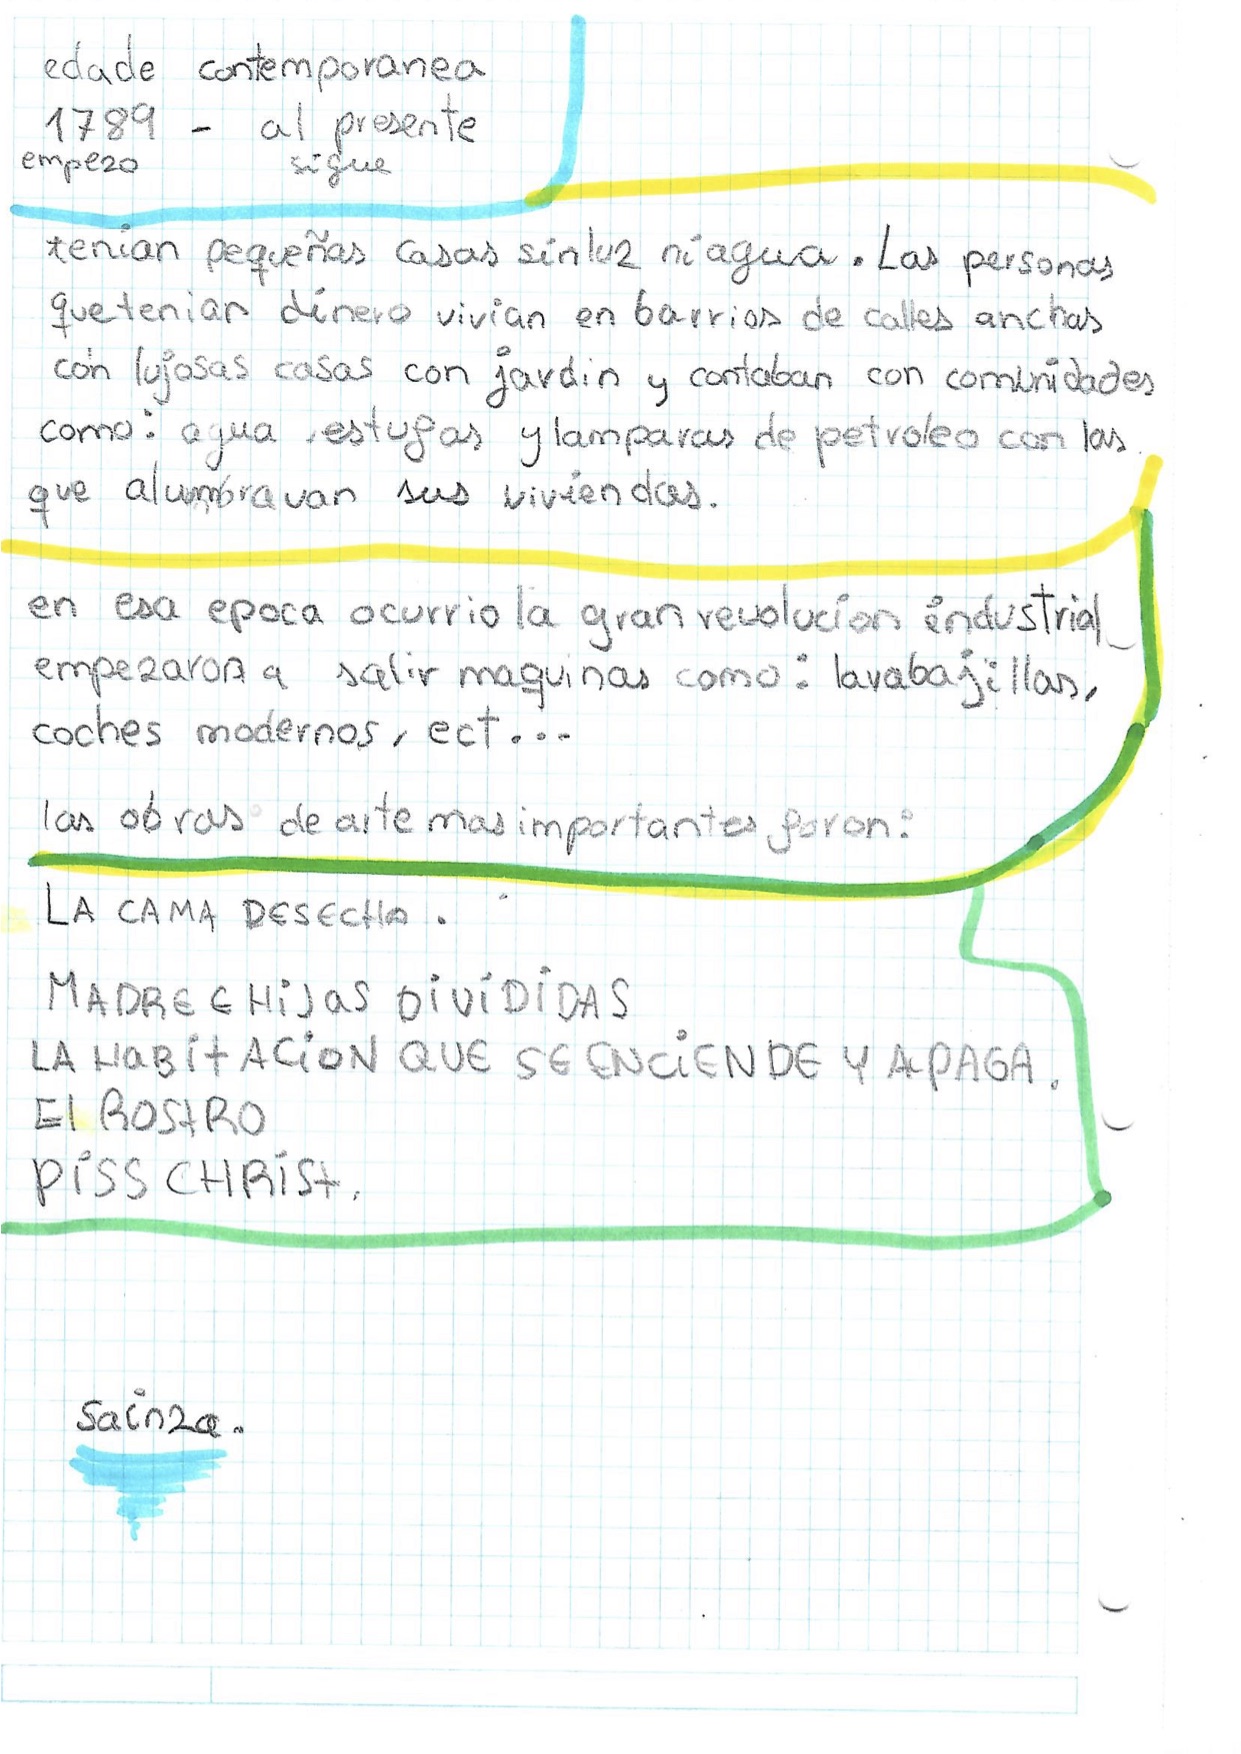 edade contemporanea
1789 - al presente
empezo sigue
tenian pequeñas casas sin luz ni agua. Las personas
que tenian dinero vivian en barrios de calles anchas
con lujosas casas con jardin y contaban con comunidades
como: agua, estufas y lamparas de petroleo con las
que alumbravan sus viviendas.
en esa epoca ocurrio la gran revolucion industrial
empezaron a salir maquinas como: lavabajillas,
coches modernos, ect...
las obras de arte mas importantes foron:
LA CAMA DESECHA.
MADRE E HiJaS DiViDiDAS
LA HABiTACiON QUE SE ENCiENDE Y APAGA.
El ROSTRO
PiSS CHRiSt.
Sainza.